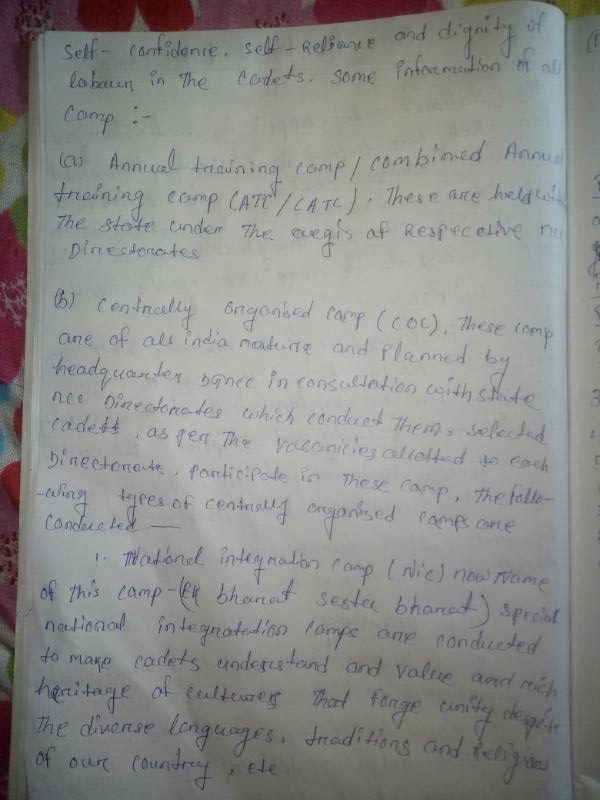 self-confidence. self-Reliance and dignity of
labour in the cadets. some information of all
camp :-
(a) Annual training camp/combined Annual
training camp (ATC/CATC), These are held with
The state under The aegis of Respecetive ncc
Directorates
(b) centrally organised camp (COC), These camp
are of all india nature and planned by
headquarter DGNCC in consultation with state
ncc Directorates which conduct them. selected
cadets, as per The vacanicies allotted to each
Directorate, participate in those camp, the follo-
-wing types of centrally organised camps are
conducted —
1. National integration camp (Nic) now Name
of this camp-(EK bharat sesta bharat) special
national integratation camps are conducted
to make cadets understand and value and rich
heritage of cultures That forge unity despite
The diverse languages, traditions and Religions
of our country, etc